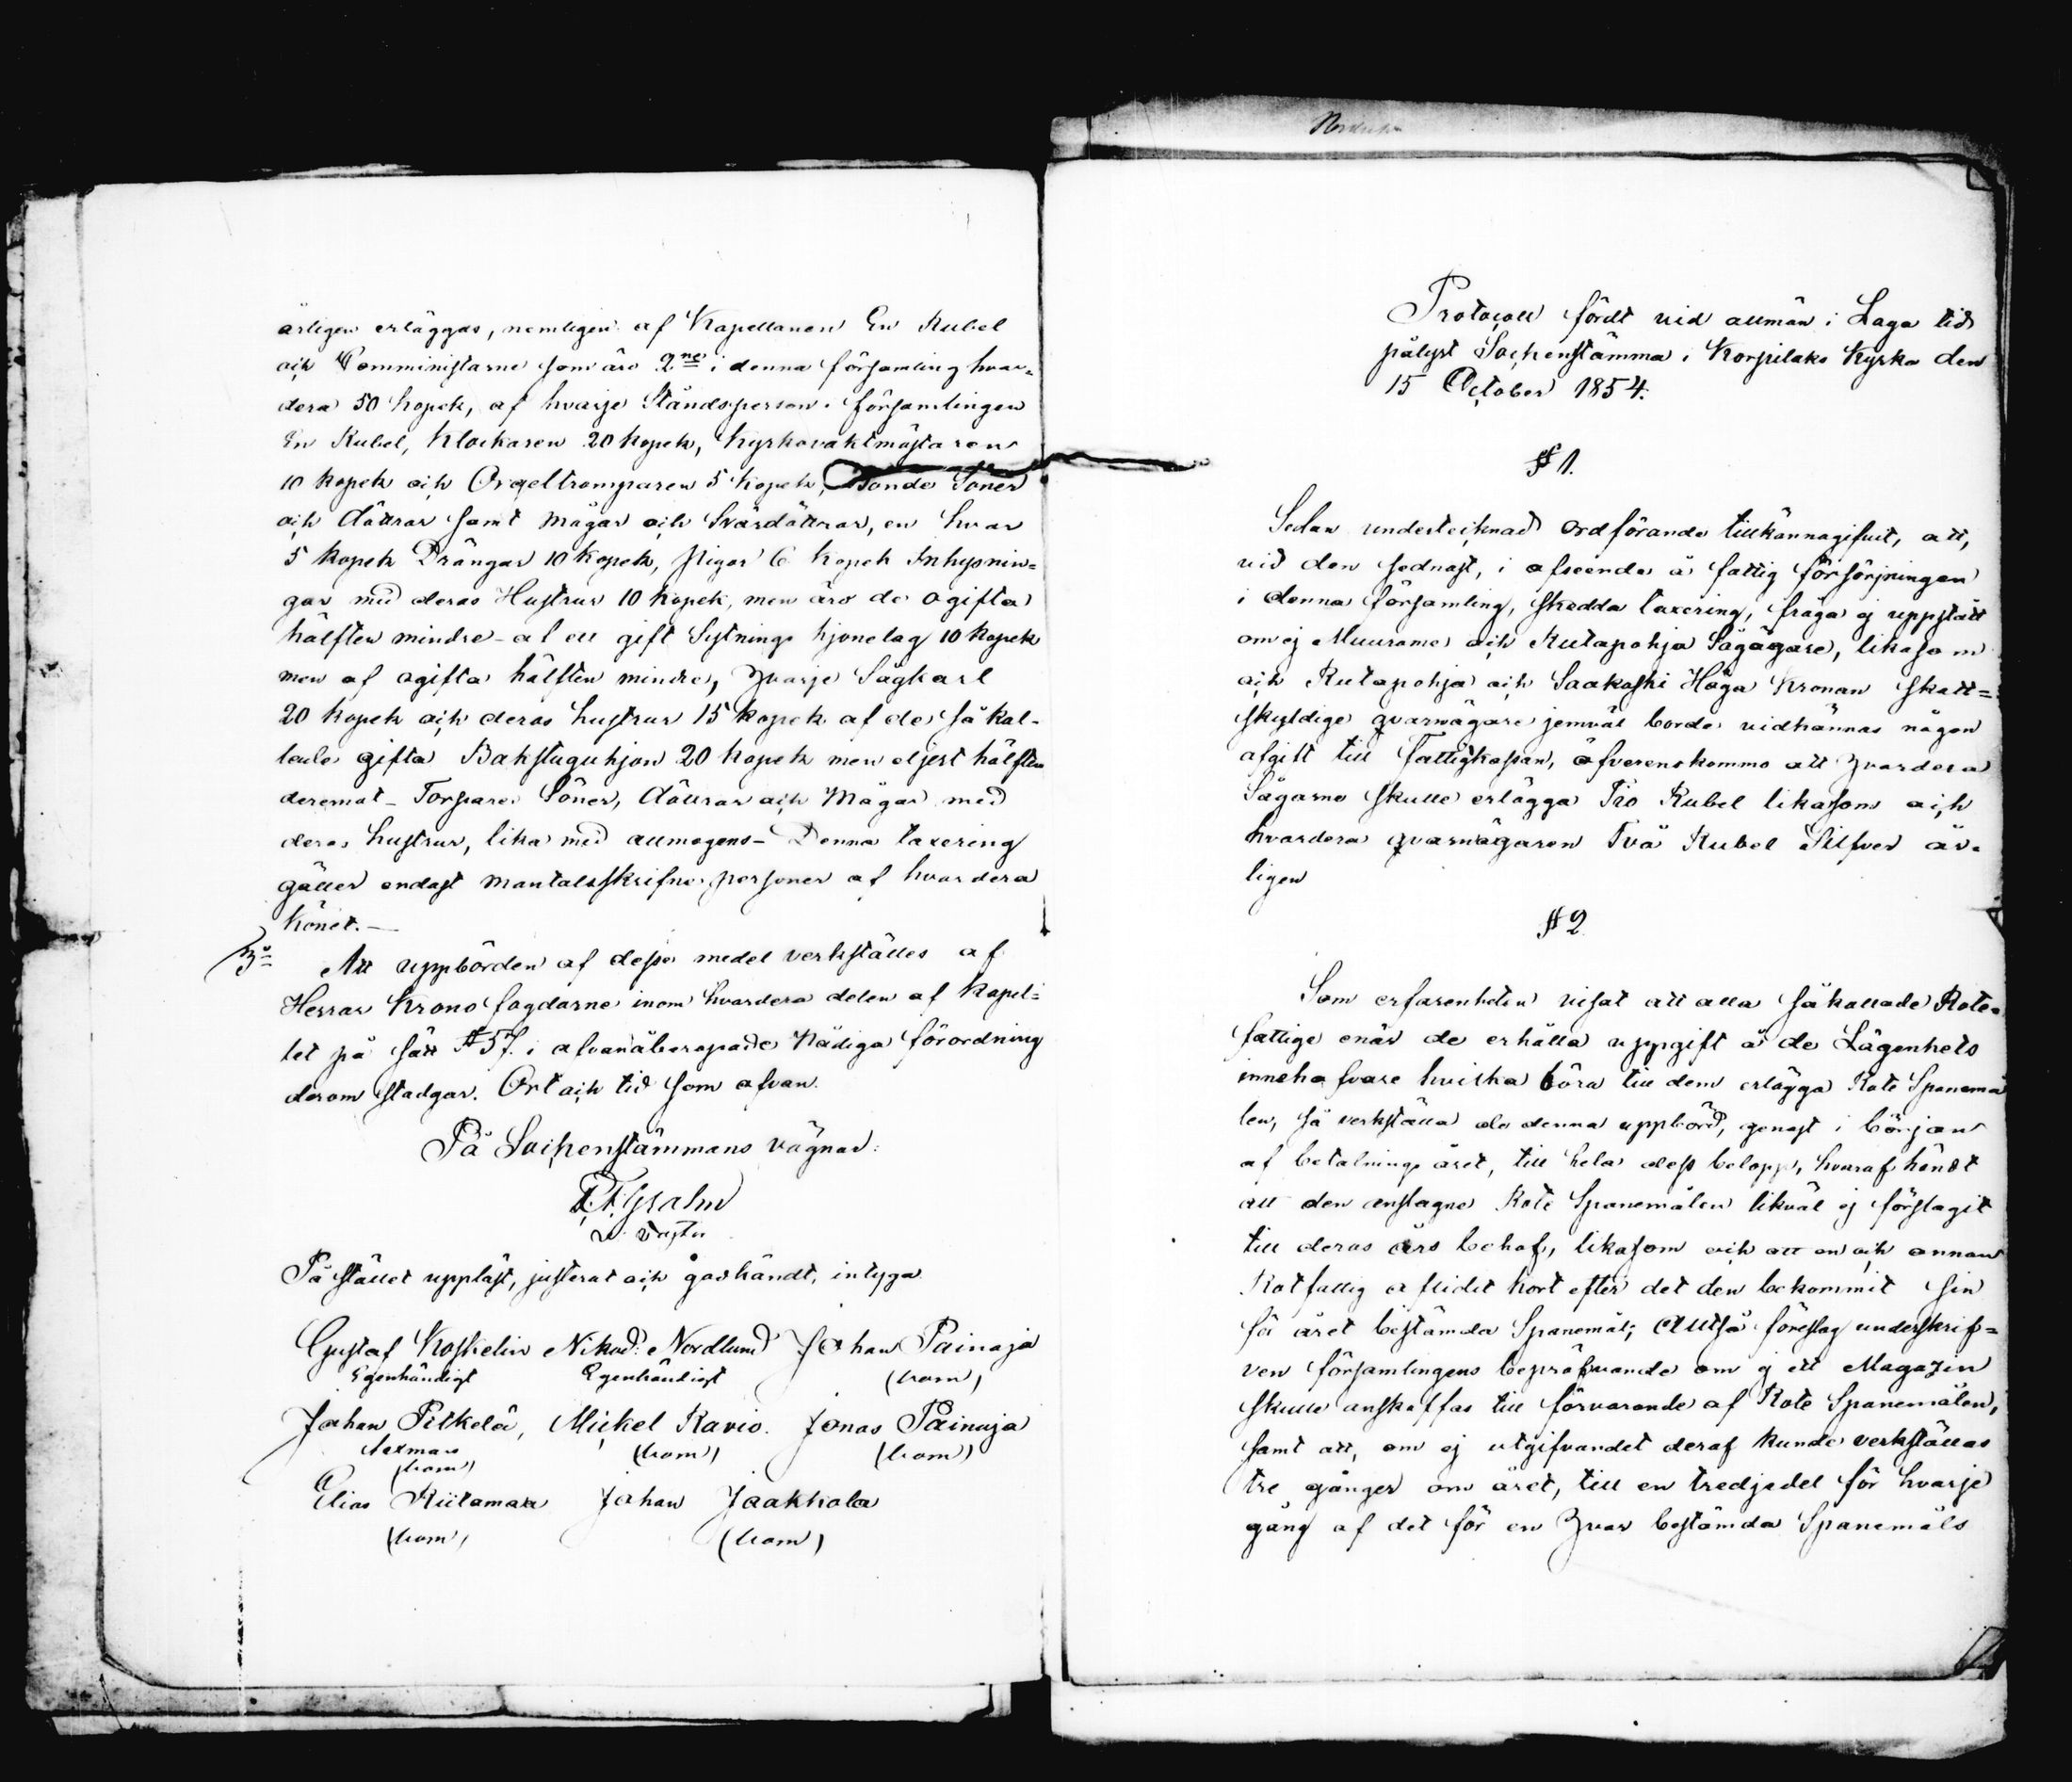 årligen erläggas, nemligen af Kapellanen En Rubel
och Comministarne som äro 2ne i denna församling hvar=
dera 50 kopek, af hvarje Ståndsperson i församlingen
En Rubel, Klockaren 20 kopek, Kyrkovaktmästaren
10 kopek och Orgeltramparen 5 kopek, Bonde Söner
och döttrar samt mågar och Svärdöttrar, en hvar
5 kopek Drängar 10 kopek, pigor 6 kopek Inhysnin=
gar med deras Hustrur 10 kopek, men äro de ogifta
hälften mindre – af ett gift Sytnings hjonelag 10 kopek
men af ogifta hälften mindre, Hvarje Sågkarl
20 kopek och deras hustrur 15 kopek af de så kal-
lade gifta Bakstuguhjon 20 kopek men eljest hälften
deremot – Torpare Söner, döttrar och Mågar med
deras hustrur, lika med allmogens – Denna taxering
gäller endast mantalsskrifne personer af hvardera
könet. –
3o Att uppbörden af dessa medel verkställes af
Herrar Krono fogdarne inom hvardera delen af Kapel=
let på sätt § 57. i ofvanåberopade Nådiga förordning
derom stadgar. Ort och tid som ofvan.
På Sockenstämmans vägnar:
På stället uppläst, justerat och godkändt, intyga
Gustaf Koskelin Nikod: Nordlund Johan Painaja
Egenhändigt Egenhändigt (bom)
Johan Pitkelä, Mickel Ravio. Jonas Painaja
(bom) (bom) (bom)
Elias Riitamaa Johan Jaakkola
(bom) (bom)
Protocoll fördt vid allmän i Laga tid
pålyst Sockenstämma i Korpilaks Kyrka den
15 October 1854.
§ 1.
Sedan undertecknad Ordförande tillkännagifvit, att,
vid den sednast, i afseende å fattig försörjningen
i denna församling, skedda taxering, fråga ej uppstått
om ej Muurame och Rutapohja Sågägare, likasom
och Rutapohja och Saakoski Höga Kronan skatt=
skyldige qvarnägare jemväl borde vidkännas någon
afgift till Fattigkassan, öfverenskommo att Hvardera
Sågarne skulle erlägga Tio Rubel likasom och
hvardera qvarnägaren Två Rubel Silfver år-
ligen
§ 2
Som erfarenheten visat att alla såkallade Rote=
fattige enär de erhålla uppgift å de Lägenhets
innehafvare hvilka böra till dem erlägga Rote Spanemå
len, så verkställa de denna uppbörd, genast i början
af betalnings året, till hela dess belopp, hvaraf händt
att den anslagne Rote Spanemålen likväl ej förslagit
till deras års behof, likasom och att en och annan
Rotfattig aflidit kort efter det den bekommit sin
för året bestämda Spanemål; Alltså föreslog underskrif=
ven församlingens bepröfvande om ej ett Magazin
skulle anskaffas till förvarande af Rote Spanemålen,
samt att, om ej utgifvandet deraf kunde verkställas
tre gånger om året, till en tredjedel för hvarje
gång af det för en Hvar bestämda Spanemåls